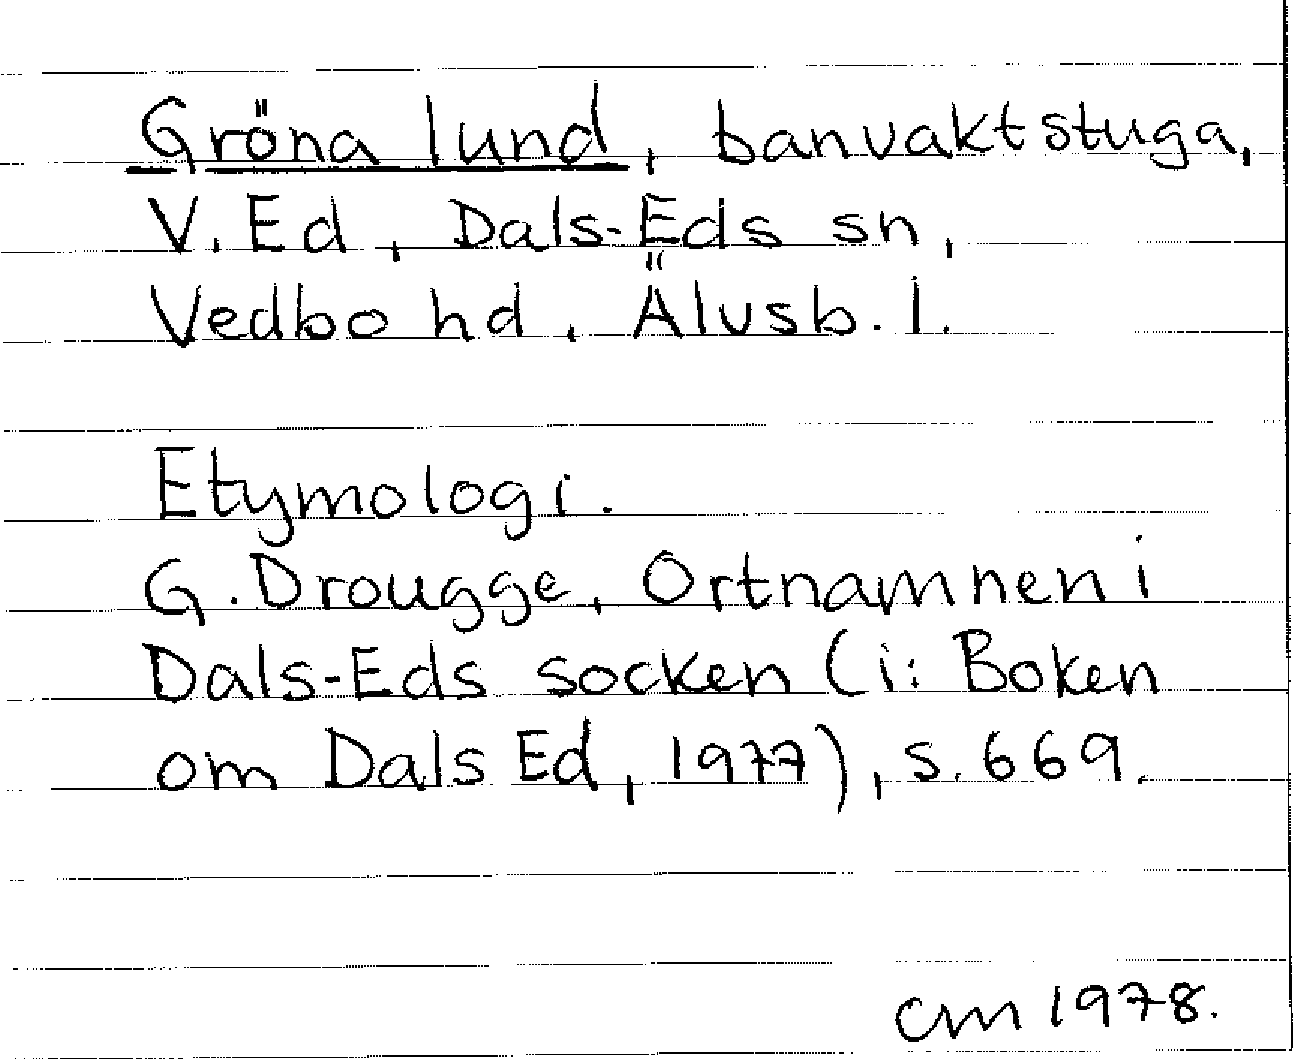 Gröna lund, banvaktstuga,
V. Ed, Dals-Eds sn,
Vedbo hd, Älvsb. l.
Etymologi.
G. Drougge, Ortnamnen i
Dals-Eds socken (i: Boken
om Dals Ed, 1977), s. 669.
CM 1978.